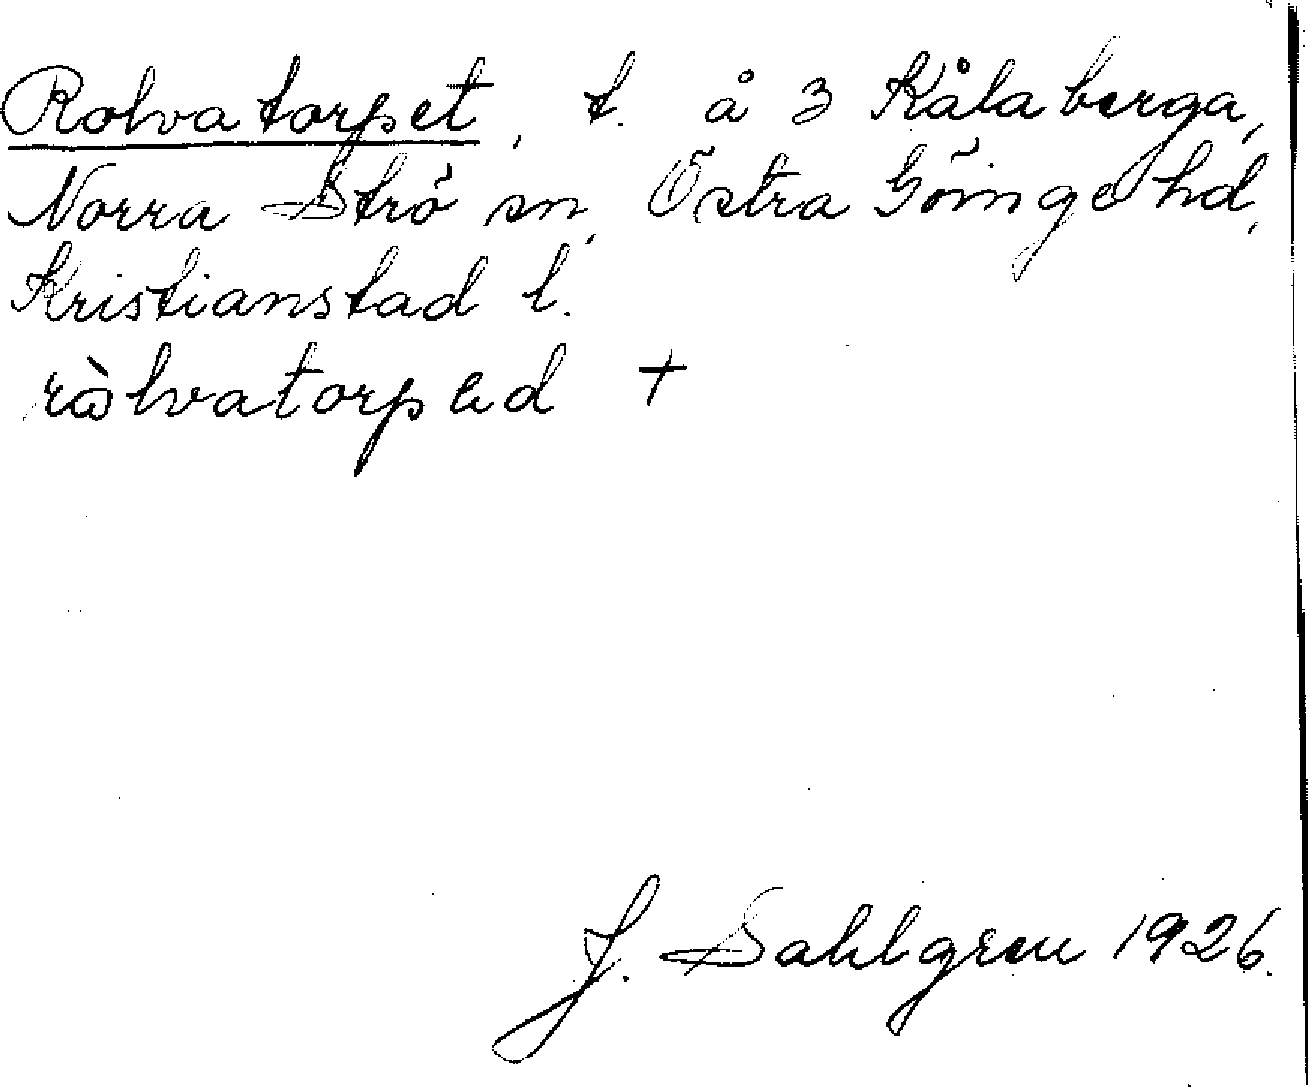 Rolvatorpet, t. å 3 Kålaberga,
Norra Strö sn, Östra Göinge hd,
Kristianstad l.
ràlvatorpad +
J. Sahlgren 1926.